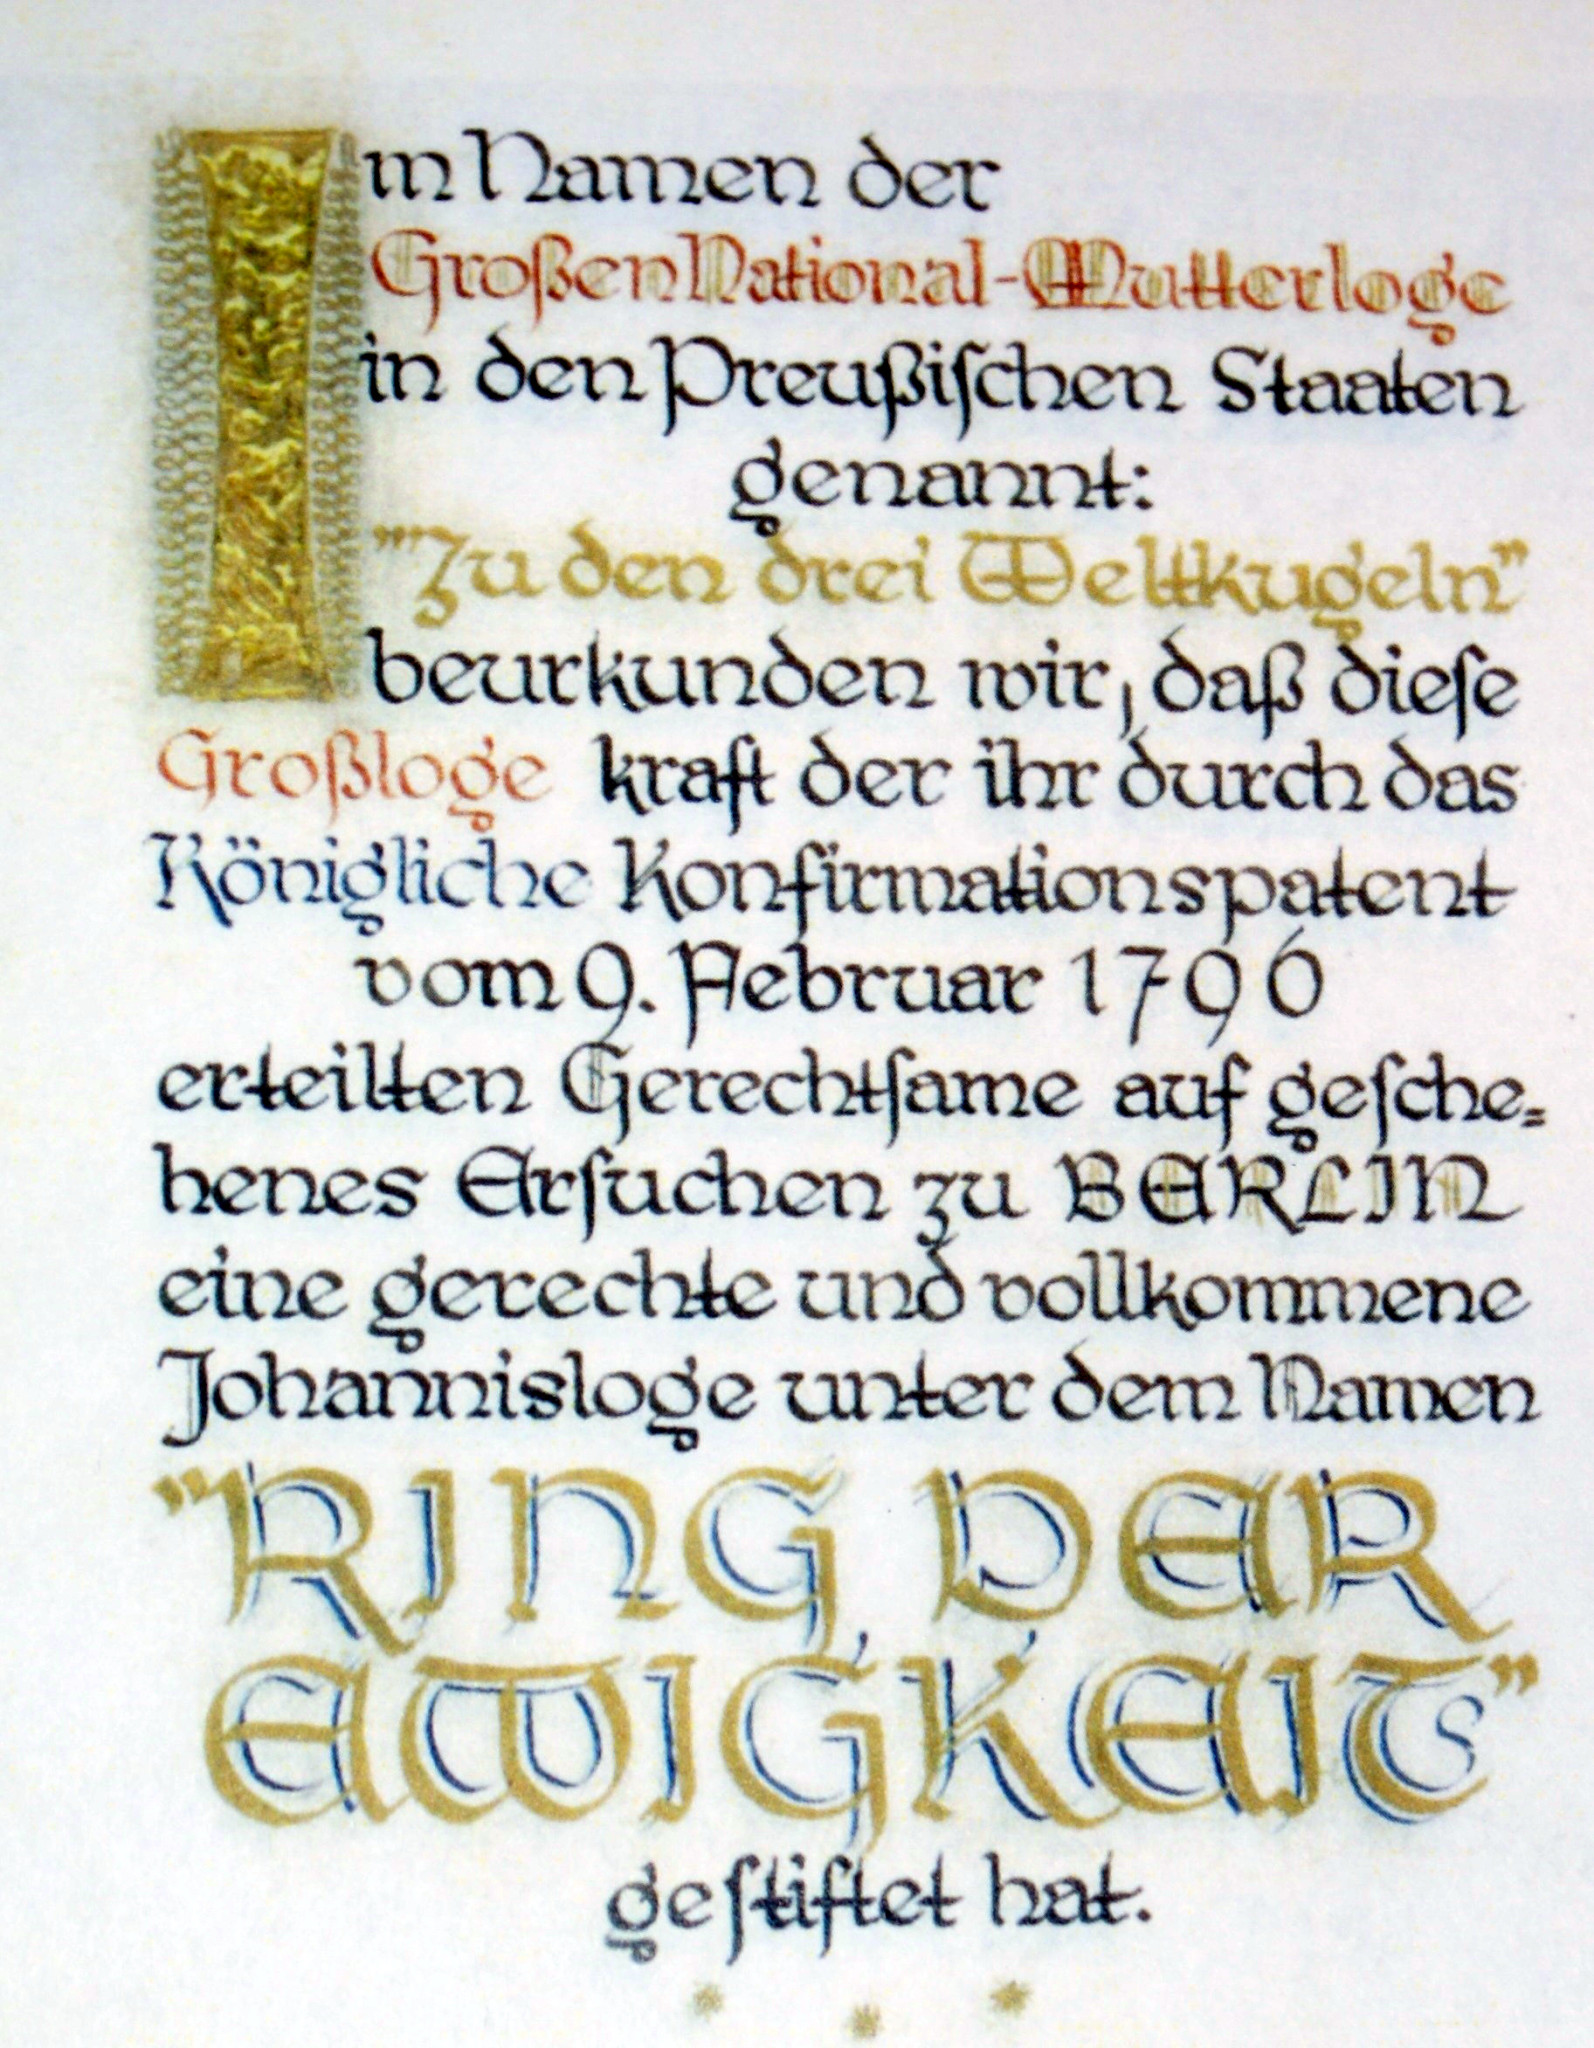 Im Namen der
Großen National-Mutterloge
in den Preußiſchen Staaten
genannt:
"Zu den drei Weltkugeln"
beurkunden wir, daß dieſe
Großloge kraft der ihr durch das
Königliche Konfirmationspatent
vom 9. Februar 1796
erteilten Gerechtſame auf geſche=
henes Erſuchen zu BERLIN
eine gerechte und vollkommene
Johannisloge unter dem Namen
"RING DER
EWIGKEIT"
geſtiftet hat.